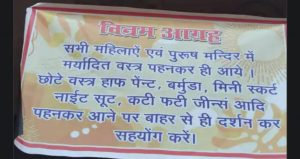 विनम्र आग्रह
सभी महिलाऐं एवं पुरूष मन्दिर में
मर्यादित वस्त्र पहनकर ही आये।
छोटे वस्त्र हाफ पेंन्ट, बर्मुडा, मिनी स्कर्ट
नाईट सूट, कटी फटी जीन्स आदि
पहनकर आने पर बाहर से ही दर्शन कर
सहयोंग करें।